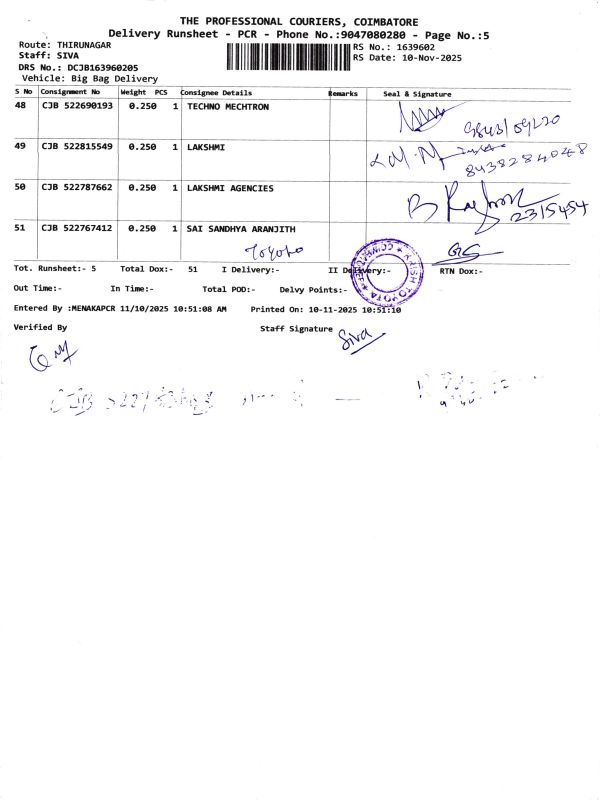 THE PROFESSIONAL COURIERS, COIMBATORE
Delivery Runsheet - PCR - Phone No.:9047080280 - Page No.:5
Route: THIRUNAGAR
RS No.: 1639602
Staff: SIVA
RS Date: 10-Nov-2025
DRS No.: DCJB163960205
Vehicle: Big Bag Delivery
S No Consignment No Weight PCS Consignee Details Remarks Seal & Signature
48 CJB 522690193 0.250 1 TECHNO MECHTRON
49 CJB 522815549 0.250 1 LAKSHMI
8438284048
50 CJB 522787662 0.250 1 LAKSHMI AGENCIES
2315454
51 CJB 522767412 0.250 1 SAI SANDHYA ARANJITH
Toyoto
Tot. Runsheet:- 5 Total Dox:- 51 I Delivery:- II Delivery:- RTN Dox:-
Out Time:- In Time:- Total POD:- Delvy Points:-
Entered By :MENAKAPCR 11/10/2025 10:51:08 AM Printed On: 10-11-2025 10:51:10
Verified By Staff Signature
Siva